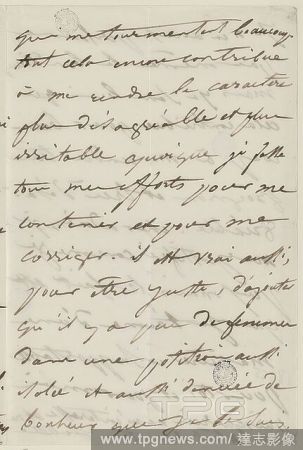 qui me tourmentent beaucoup,
tout cela encore contribue
à me rendre le caractère
plus désagréable et plus
irritable quoique je fasse
tous mes efforts pour me
contenir et pour me
corriger. il est vrai aussi,
pour être juste, d'ajouter
qu'il y a peu de femmes
dans une position aussi
isolée et aussi dénuée de
bonheur que je le suis,
TPG
www.tpgnews.com/達志影像